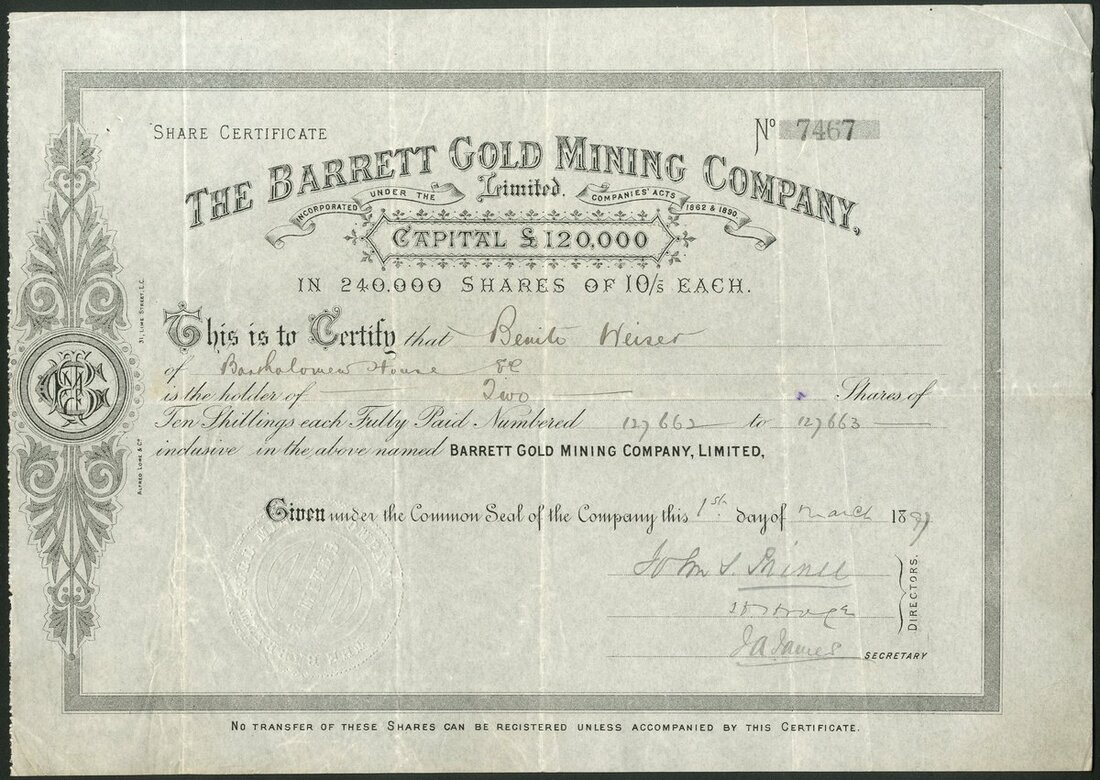 SHARE CERTIFICATE
Nº 7467
THE BARRETT GOLD MINING COMPANY,
Limited.
INCORPORATED UNDER THE COMPANIES' ACTS 1862 & 1890.
CAPITAL £120,000
IN 240,000 SHARES OF 10/s EACH.
This is to Certify that Benito Weiser
of Bartholomew House EC
is the holder of Two Shares of
Ten Shillings each Fully Paid Numbered 127662 to 127663
inclusive in the above named BARRETT GOLD MINING COMPANY, LIMITED,
Given under the Common Seal of the Company this 1st day of March 1897
John S.
DIRECTORS.
J A James SECRETARY
NO TRANSFER OF THESE SHARES CAN BE REGISTERED UNLESS ACCOMPANIED BY THIS CERTIFICATE.
31, LIME STREET, E.C.